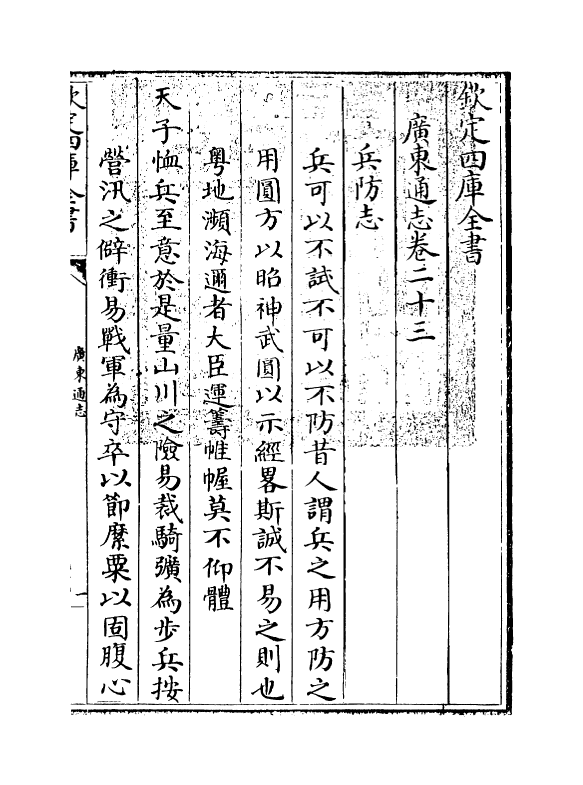 欽定四庫全書
廣東通志卷二十三
兵防志
兵可以不試不可以不防昔人謂兵之用方防之
用圓方以昭神武圓以示經畧斯誠不易之則也
粤地瀕海邇者大臣運籌帷幄莫不仰體
天子恤兵至意於是量山川之險易裁騎彍為步兵按
營汛之僻衝易戰軍為守卒以節縻粟以固腹心
欽定四庫全書
廣東通志